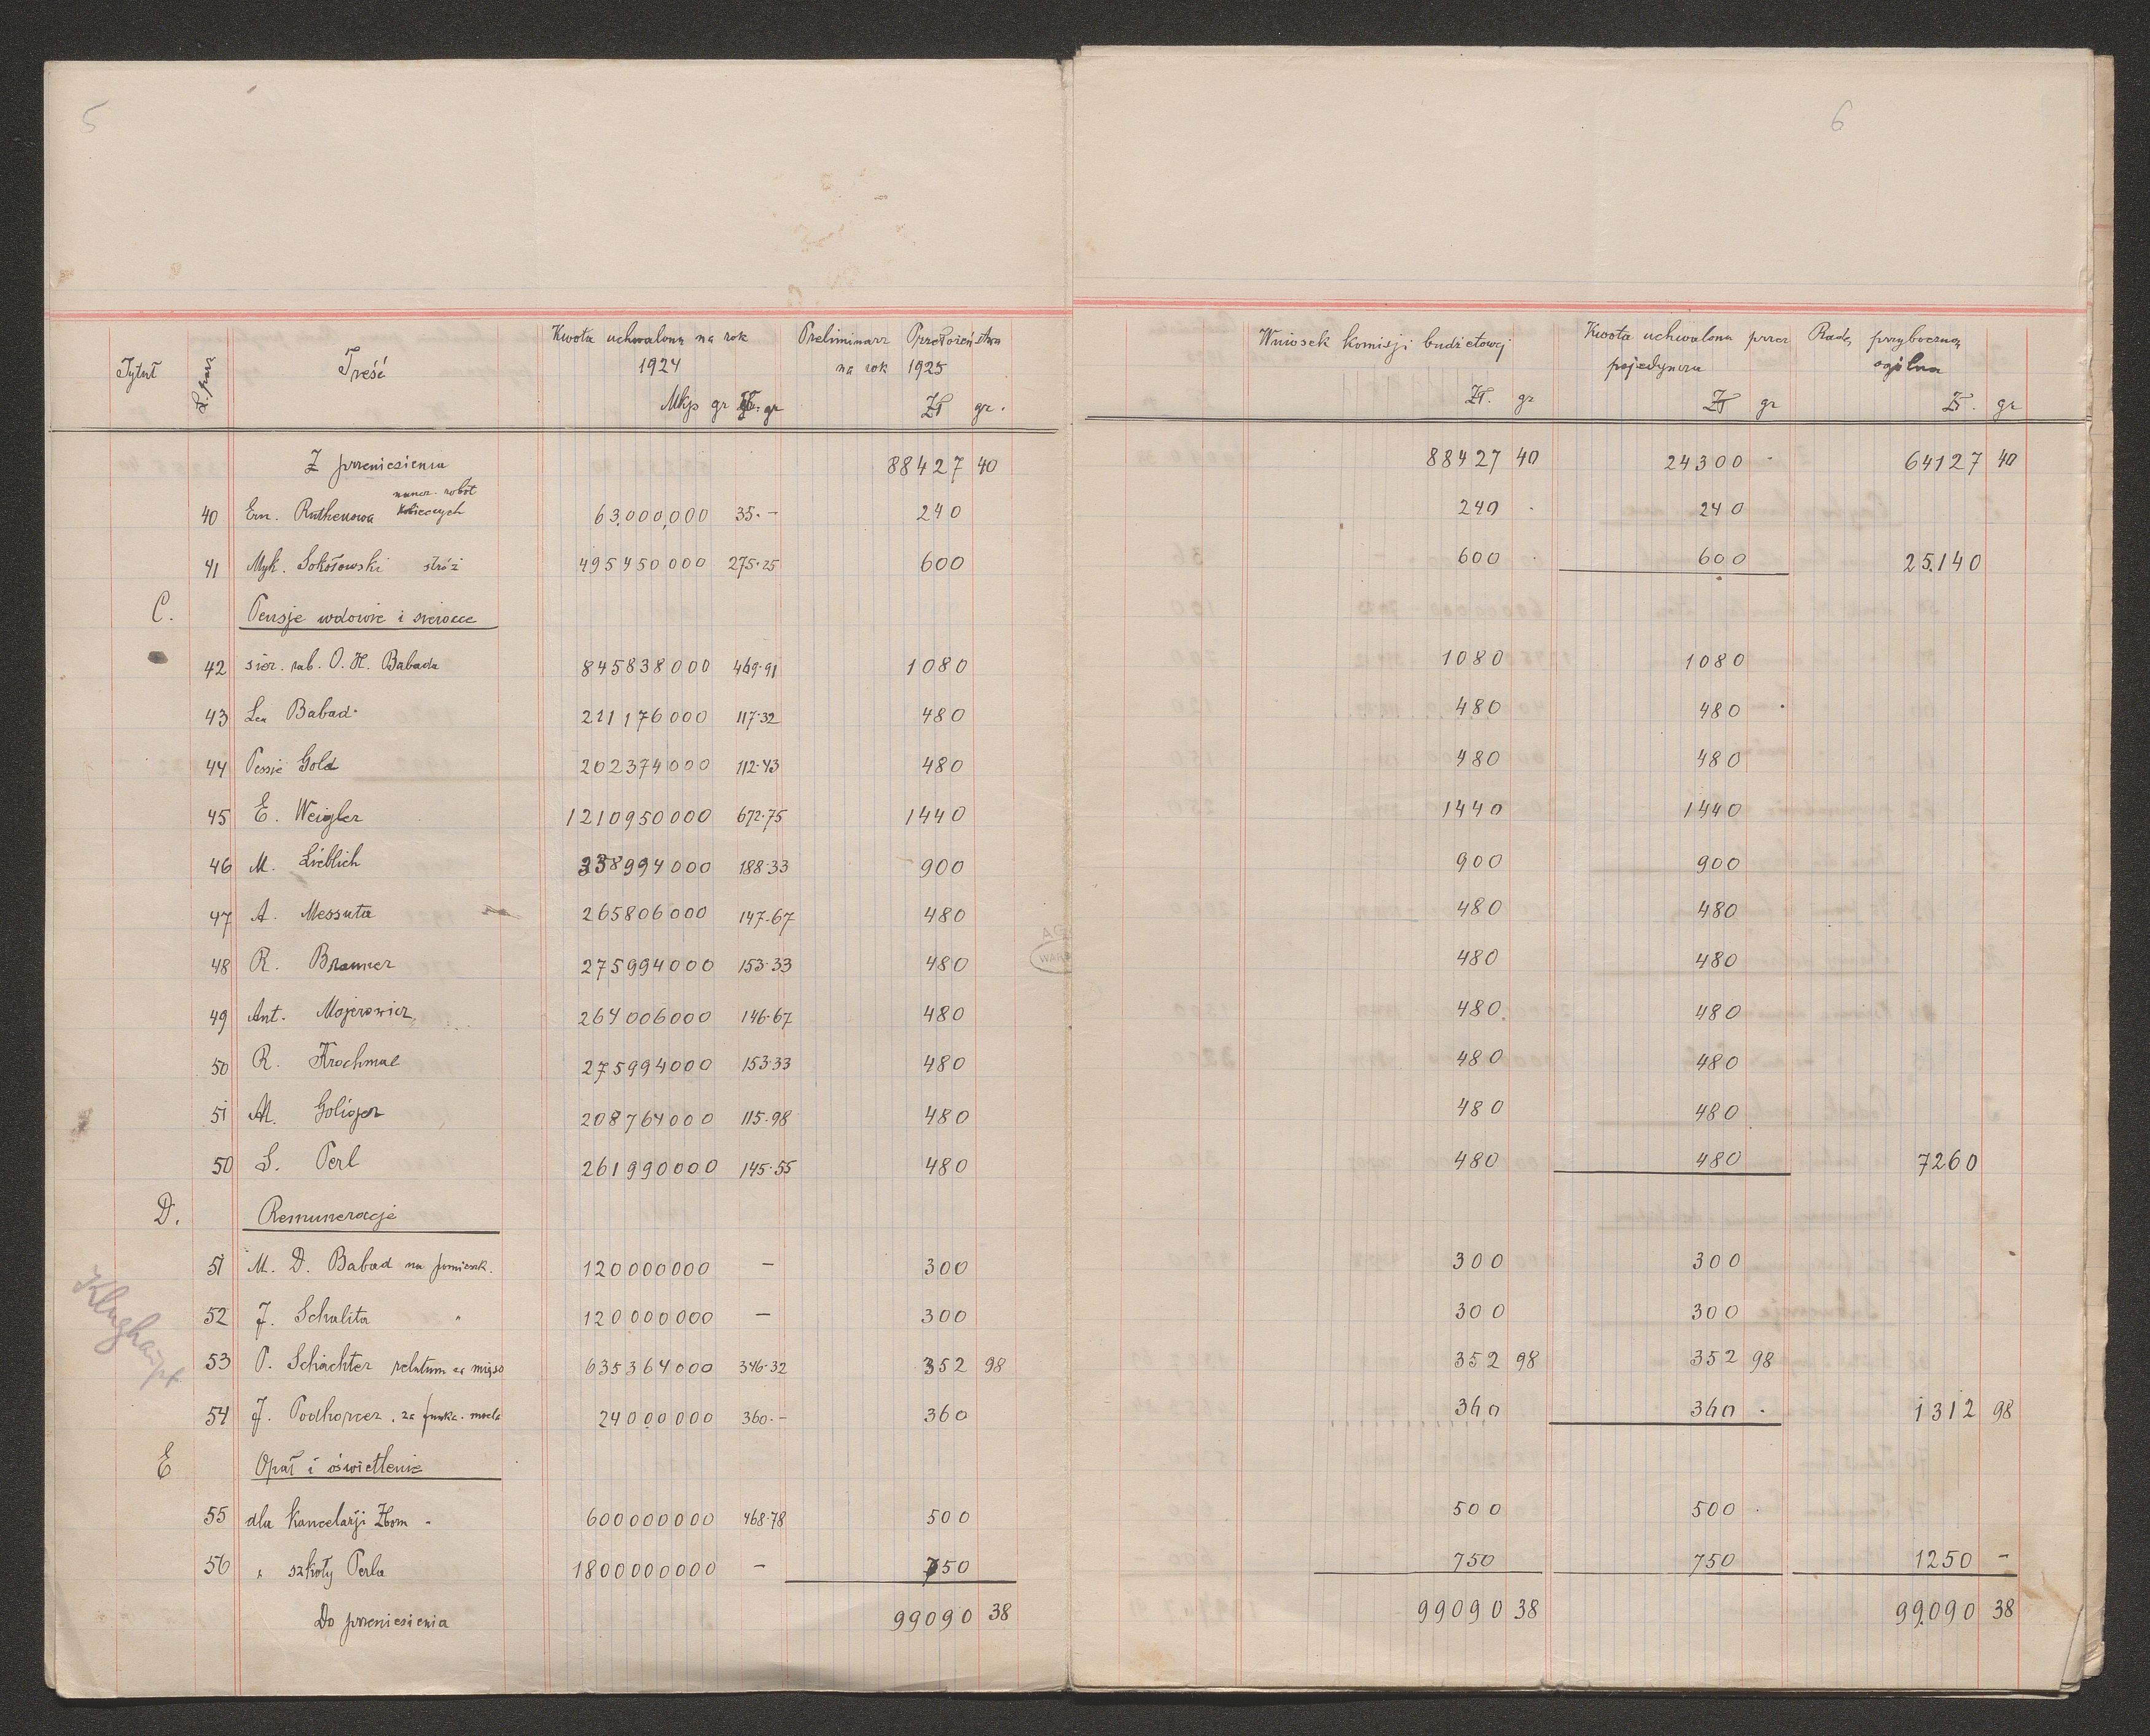 5
Tytuł L. porz. Treść Kwota uchwalona na rok 1924 Mkp gr Zł. gr Preliminarz Przełożeństwa na rok 1925 Zł gr.
Z przeniesienia 88427 40
40 Ern. Ruthenowa naucz. robót kobiecych 63.000,000 35.- 240
41 Myk. Sokołowski stróż 495450000 275.25 600
C. Pensje wdowie i sieroce
42 sier. rab. O. H. Babada 845838000 469.91 1080
43 Lea Babad 211176000 117.32 480
44 Pessie Gold 202374000 112.43 480
45 E. Weigler 1210950000 672.75 1440
46 M. Lieblich 338994000 188.33 900
47 A. Messuta 265806000 147.67 480
48 R. Brauner 275994000 153.33 480
49 Ant. Mojerowicz 264006000 146.67 480
50 R. Krochmal 275994000 153.33 480
51 M. Goliger 208764000 115.98 480
50 S. Perl 261990000 145.55 480
D. Remuneracje
51 M. D. Babad na pomieszk. 120000000 – 300
52 J. Schalita " 120000000 – 300
53 P. Schächter relutum za mięso 635364000 346.32 352 98
54 J. Podhorcer za funkc. 24000000 360.- 360
Klughaupt
E Opał i oświetlenie
55 dla kancelarji Zbom - 600000000 468.78 500
56 " szkoły Perla 1800000000 – 750
Do przeniesienia 99090 38
6
Wniosek komisji budżetowej Zł. gr Kwota uchwalona przez Radę przyboczną pojedyncza Zł gr ogólna Zł. gr
88427 40 24300 - 64127 40
240 . 240
600 . 600 25.140
1080 1080
480 480
480 480
1440 1440
900 900
480 480
480 480
480 480
480 480
480 480
480 480 7260
300 300
300 300
352 98 352 98
360 360 . 1312 98
500 500 .
750 750 1250 –
99090 38 99.090 38